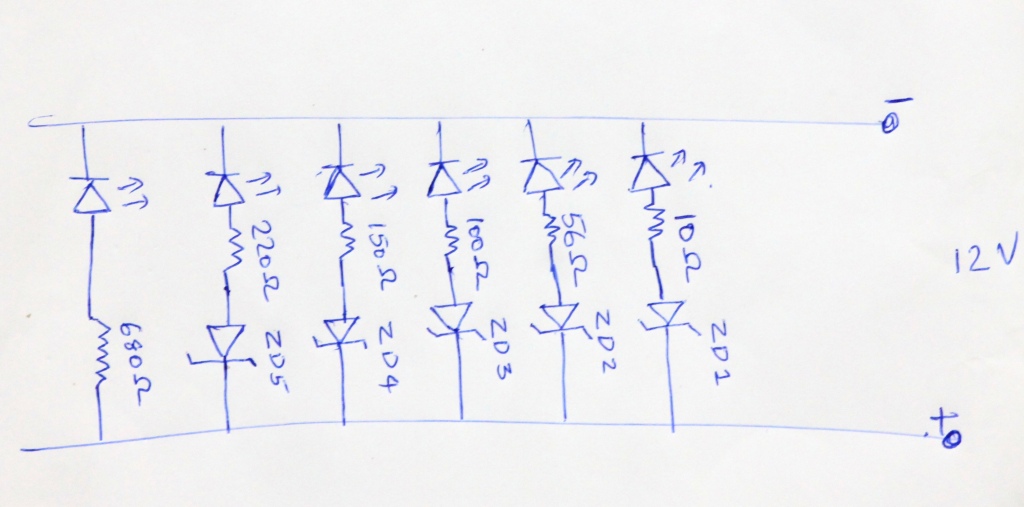 −
680Ω
220Ω
ZD5
150Ω
ZD4
100Ω
ZD3
56Ω
ZD2
10Ω
ZD1
12V
+